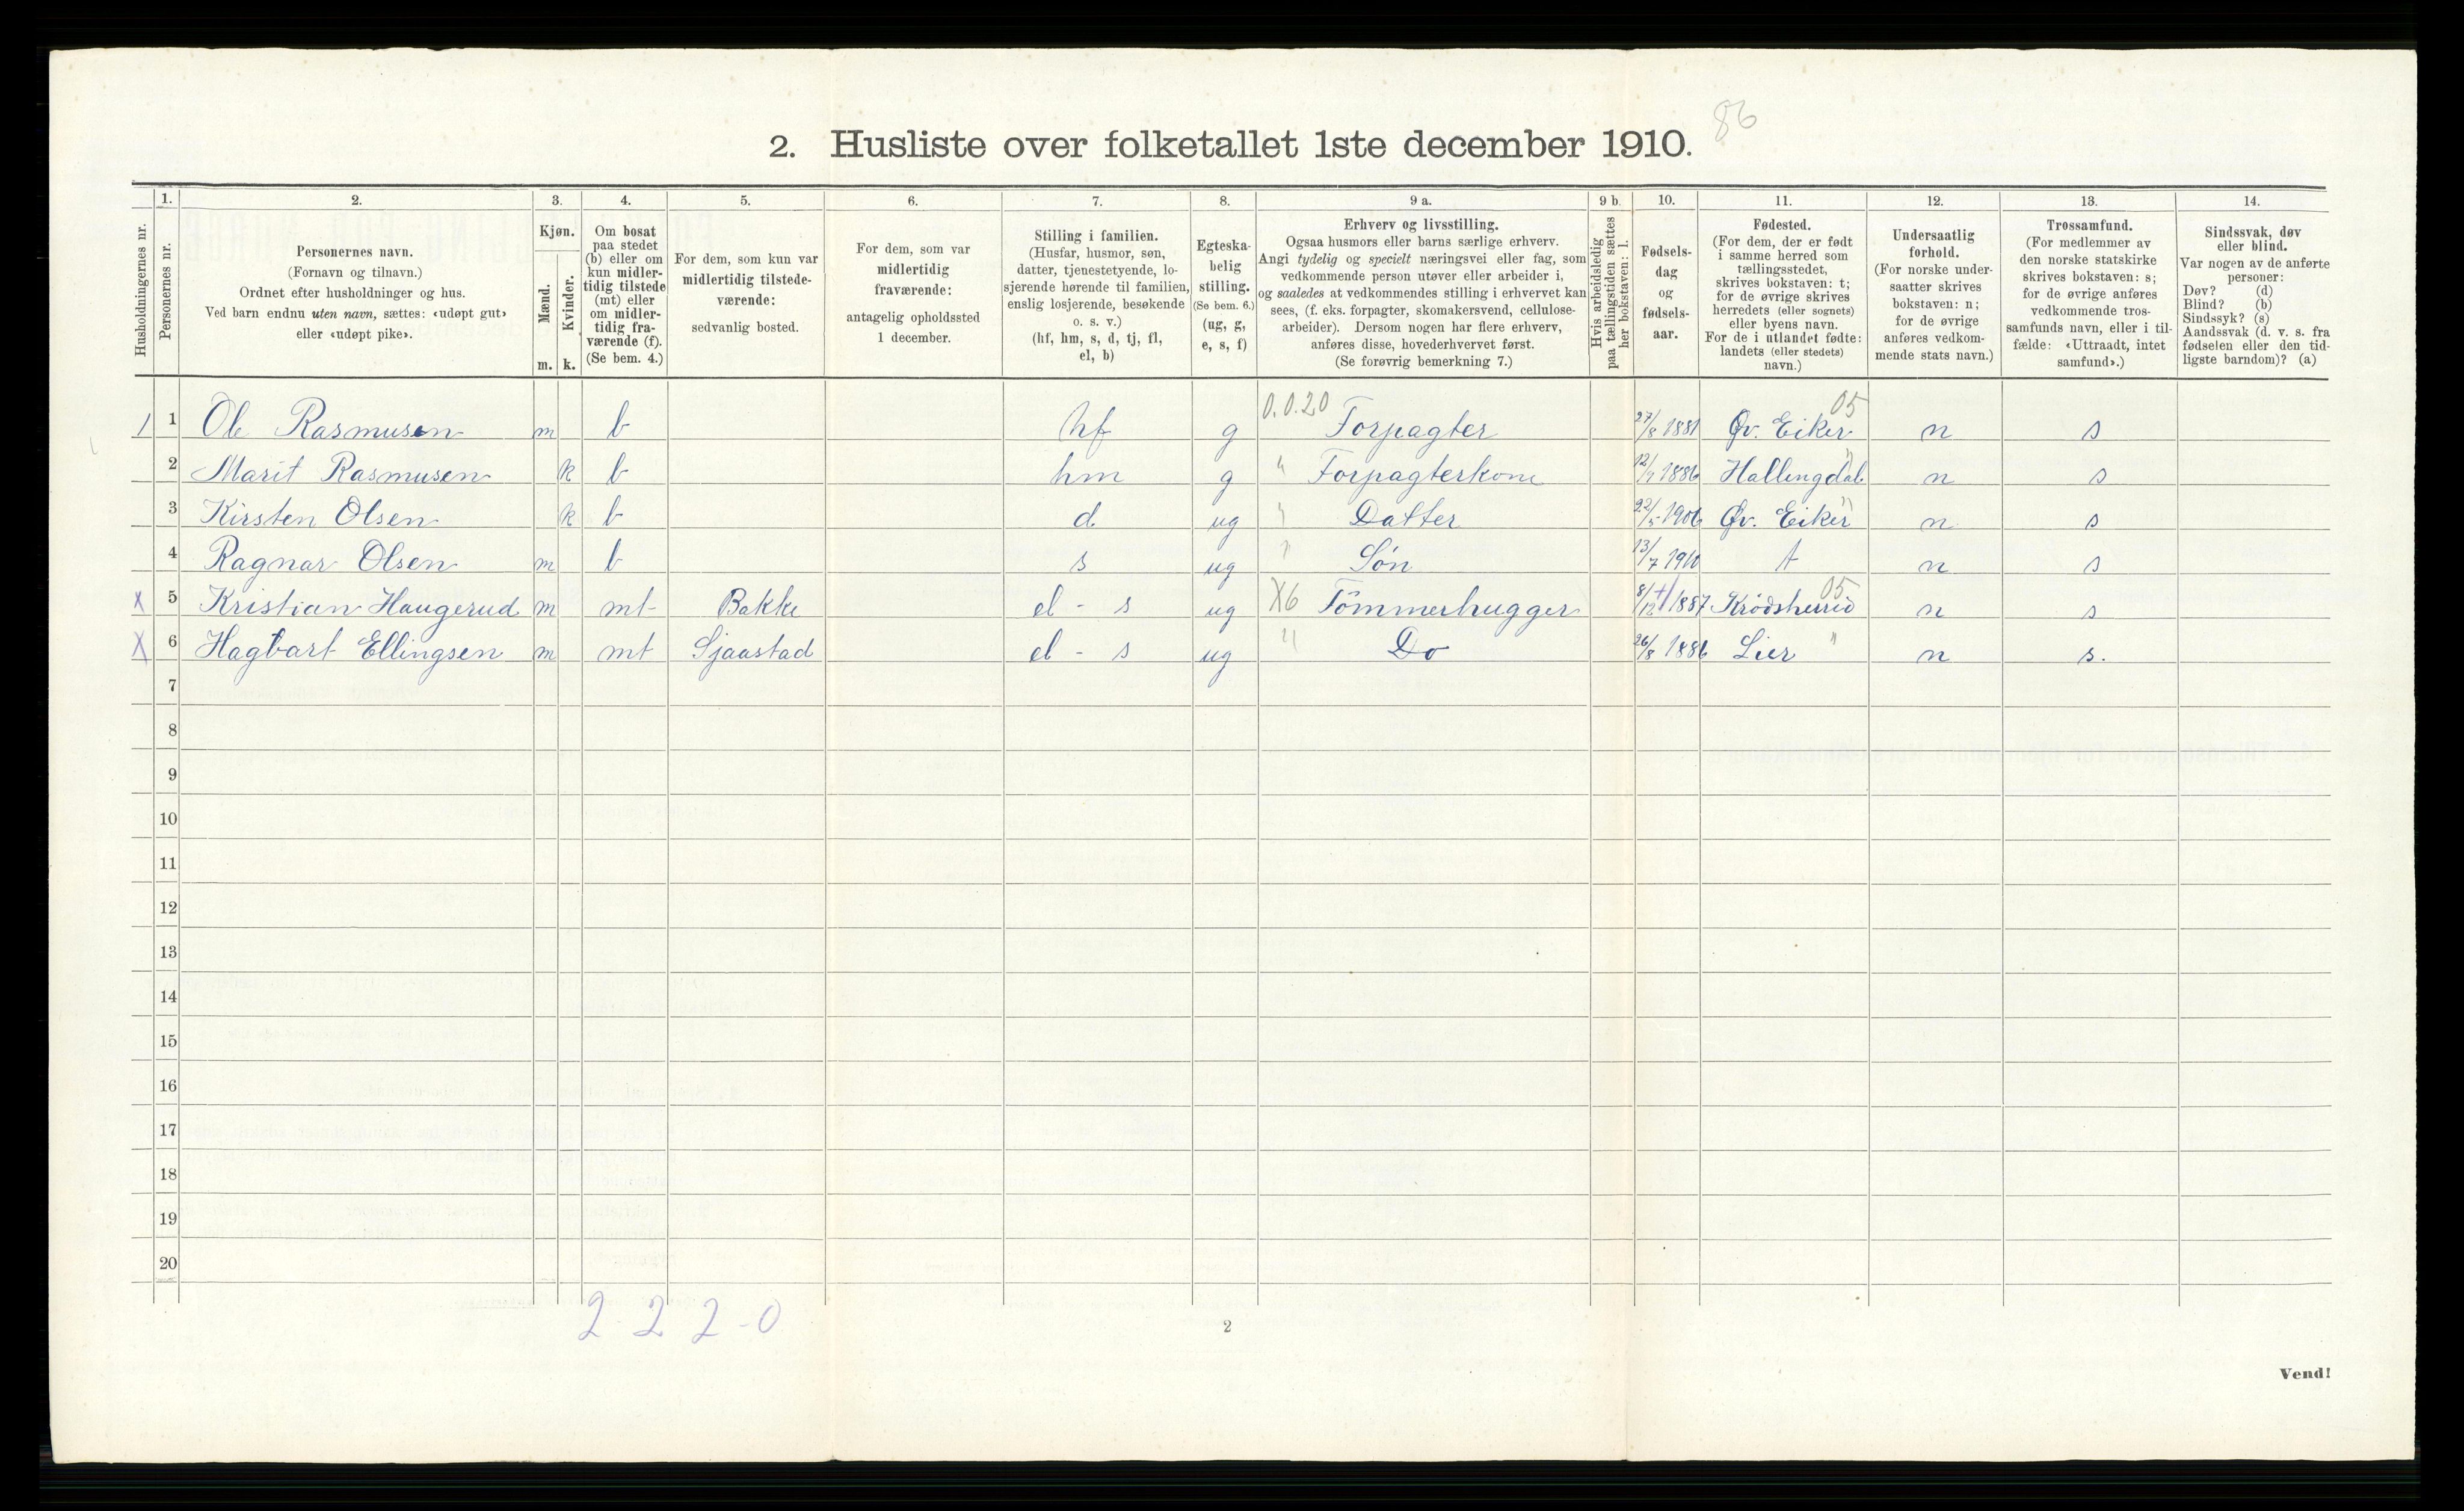 86
2. Husliste over folketallet 1ste december 1910.
Husholdningernes nr.
1. Personernes nr.
2. Personernes navn.
(Fornavn og tilnavn.)
Ordnet efter husholdninger og hus.
Ved barn endnu uten navn, sættes: «udøpt gut»
eller «udøpt pike».
3. Kjøn.
Mænd. m.
Kvinder. k.
4. Om bosat
paa stedet
(b) eller om
kun midler-
tidig tilstede
(mt) eller
om midler-
tidig fra-
værende (f).
(Se bem. 4.)
5. For dem, som kun var
midlertidig tilstede-
værende:
sedvanlig bosted.
6. For dem, som var
midlertidig
fraværende:
antagelig opholdssted
1 december.
7. Stilling i familien.
(Husfar, husmor, søn,
datter, tjenestetyende, lo-
sjerende hørende til familien,
enslig losjerende, besøkende
o. s. v.)
(hf, hm, s, d, tj, fl,
el, b)
8. Egteska-
belig
stilling.
(Se bem. 6.)
(ug, g,
e, s, f)
9 a. Erhverv og livsstilling.
Ogsaa husmors eller barns særlige erhverv.
Angi tydelig og specielt næringsvei eller fag, som
vedkommende person utøver eller arbeider i,
og saaledes at vedkommendes stilling i erhvervet kan
sees, (f. eks. forpagter, skomakersvend, cellulose-
arbeider). Dersom nogen har flere erhverv,
anføres disse, hovederhvervet først.
(Se forøvrig bemerkning 7.)
9 b. Hvis arbeidsledig
paa tællingstiden sættes
her bokstaven: l.
10. Fødsels-
dag
og
fødsels-
aar.
11. Fødested.
(For dem, der er født
i samme herred som
tællingsstedet,
skrives bokstaven: t;
for de øvrige skrives
herredets (eller sognets)
eller byens navn.
For de i utlandet fødte:
landets (eller stedets)
navn.)
12. Undersaatlig
forhold.
(For norske under-
saatter skrives
bokstaven: n;
for de øvrige
anføres vedkom-
mende stats navn.)
13. Trossamfund.
(For medlemmer av
den norske statskirke
skrives bokstaven: s;
for de øvrige anføres
vedkommende tros-
samfunds navn, eller i til-
fælde: «Uttraadt, intet
samfund».)
14. Sindssvak, døv
eller blind.
Var nogen av de anførte
personer:
Døv? (d)
Blind? (b)
Sindssyk? (s)
Aandssvak (d. v. s. fra
fødselen eller den tid-
ligste barndom)? (a)
1 1 Ole Rasmusen m b hf g 0.0.20 Forpagter 27/8 1881 Øv. Eiker 05 n s
2 Marit Rasmusen k b hm g " Forpagterkone 12/9 1886 Hallingdal " n s
3 Kirsten Olsen k b d ug " Datter 22/5 1906 Øv. Eiker " n s
4 Ragnar Olsen m b s ug " Søn 13/7 1910 t n s
x 5 Kristian Haugerud m mt Bakke el - s ug X6 Tømmerhugger 8/12 1887 Krødsherred 05 n s
X 6 Hagbart Ellingsen m mt Sjaastad el - s ug " Do 26/8 1886 Lier " n s.
7
8
9
10
11
12
13
14
15
16
17
18
19
20
2 2 2 - 0
2
Vend!